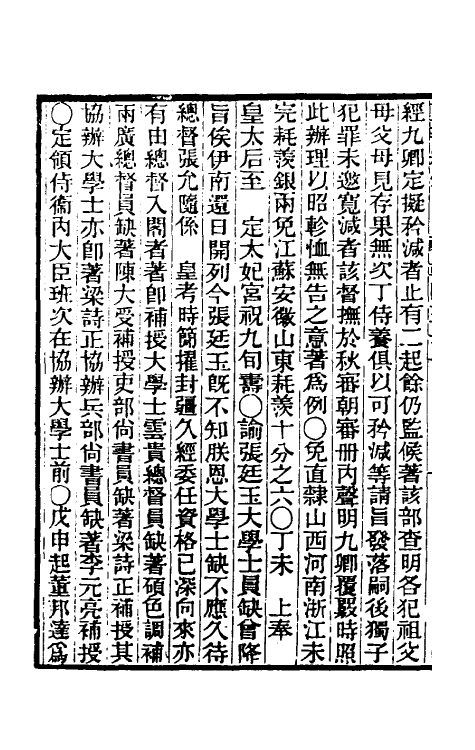 經九卿定擬矜減者止有一二起餘仍監候著該部查明各犯祖父
母父母見存果無次丁侍養俱以可矜減等請旨發落嗣後獨子
犯罪未邀寬減者該督撫於秋審朝審冊內聲明九卿覆覈時照
此辦理以昭軫恤無告之意著為例〇免直隸山西河南浙江未
完耗羨銀兩免江蘇安徽山東耗羨十分之六〇丁未 上奉
皇太后至 定太妃宮祝九旬壽〇諭張廷玉大學士員缺曾降
旨俟伊南還日開列今張廷玉既不知朕恩大學士缺不應久待
總督張允隨係 皇考時簡擢封疆久經委任資格已深向來亦
有由總督入閣者著即補授大學士雲貴總督員缺著碩色調補
兩廣總督員缺著陳大受補授吏部尚書員缺著梁詩正補授其
協辦大學士亦即著梁詩正協辦兵部尚書員缺著李元亮補授
〇定領侍衞內大臣班次在協辦大學士前〇戊申起董邦達為